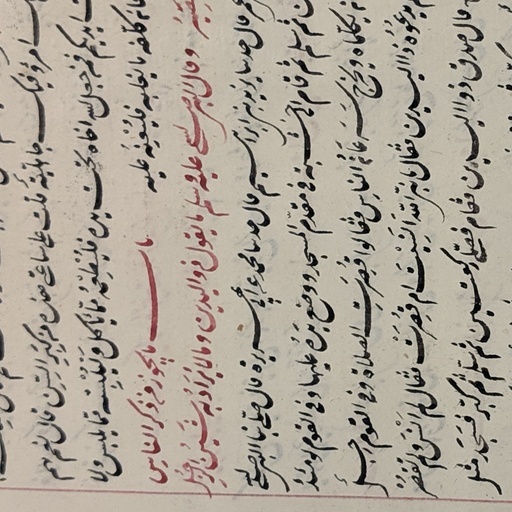 امرؤ فيك جاهلية قلت على ساعتي هذه من كبر السن قال نعم هم
ايديكم فمن جعل الله اخاه تحت يده فليطعمه مما يأكل وليلبسه مما يلبس ولا
كلفه ما يغلبه فليعنه عليه باب ما يجوز من ذكر الناس
وقال النبي صلى الله عليه وسلم ما يقول ذو اليدين وما لا يراد به شين الرجل
قال حدثنا يزيد بن ابراهيم قال حدثنا محمد عن ابي هريرة قال صلى بنا النبي صلى
ثم سلم ثم قام الى خشبة في مقدم المسجد ووضع يده عليها وفي القوم يومئذ
يكلماه ويخرج سرعان الناس فقالوا قصرت الصلاة وفي القوم رجل
يدعوه ذا اليدين فقال يا نبي الله انسيت ام قصرت فقال لم انس ولم تقصر
قال صدق ذو اليدين فقام فصلى ركعتين ثم سلم ثم كبر فسجد مثل